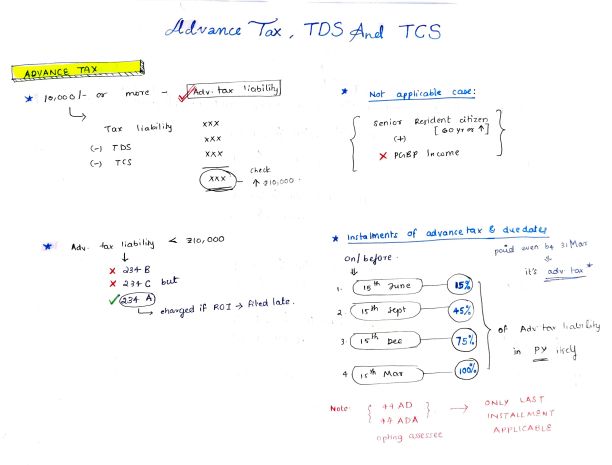 Advance Tax, TDS And TCS
ADVANCE TAX
★ 10,000/- or more - ✓ Adv. tax liability
Tax liability xxx
xxx
(-) TDS xxx
(-) TCS xxx
xxx check ↑ ₹10,000.
★ Not applicable case:
Senior Resident citizen
[60 yr or ↑]
(+)
× PGBP Income
★ Adv. tax liability < ₹10,000
↓
× 234 B
× 234 C but
✓ 234 A
→ charged if ROI → filed late.
★ Instalments of advance tax & due dates
on/before.
paid even by 31 Mar
⇓
it's adv tax*
1. 15th June 15%
2. 15th Sept 45%
3. 15th Dec 75%
4. 15th Mar 100%
of Adv tax liability
in PY itself
Note: { 44 AD
44 ADA }
opting assessee
→ ONLY LAST
INSTALLMENT
APPLICABLE